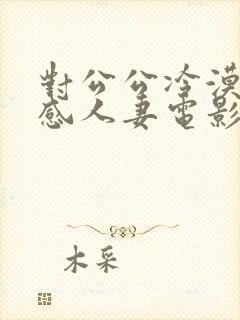 對公公冷漠
感人妻電影
木采